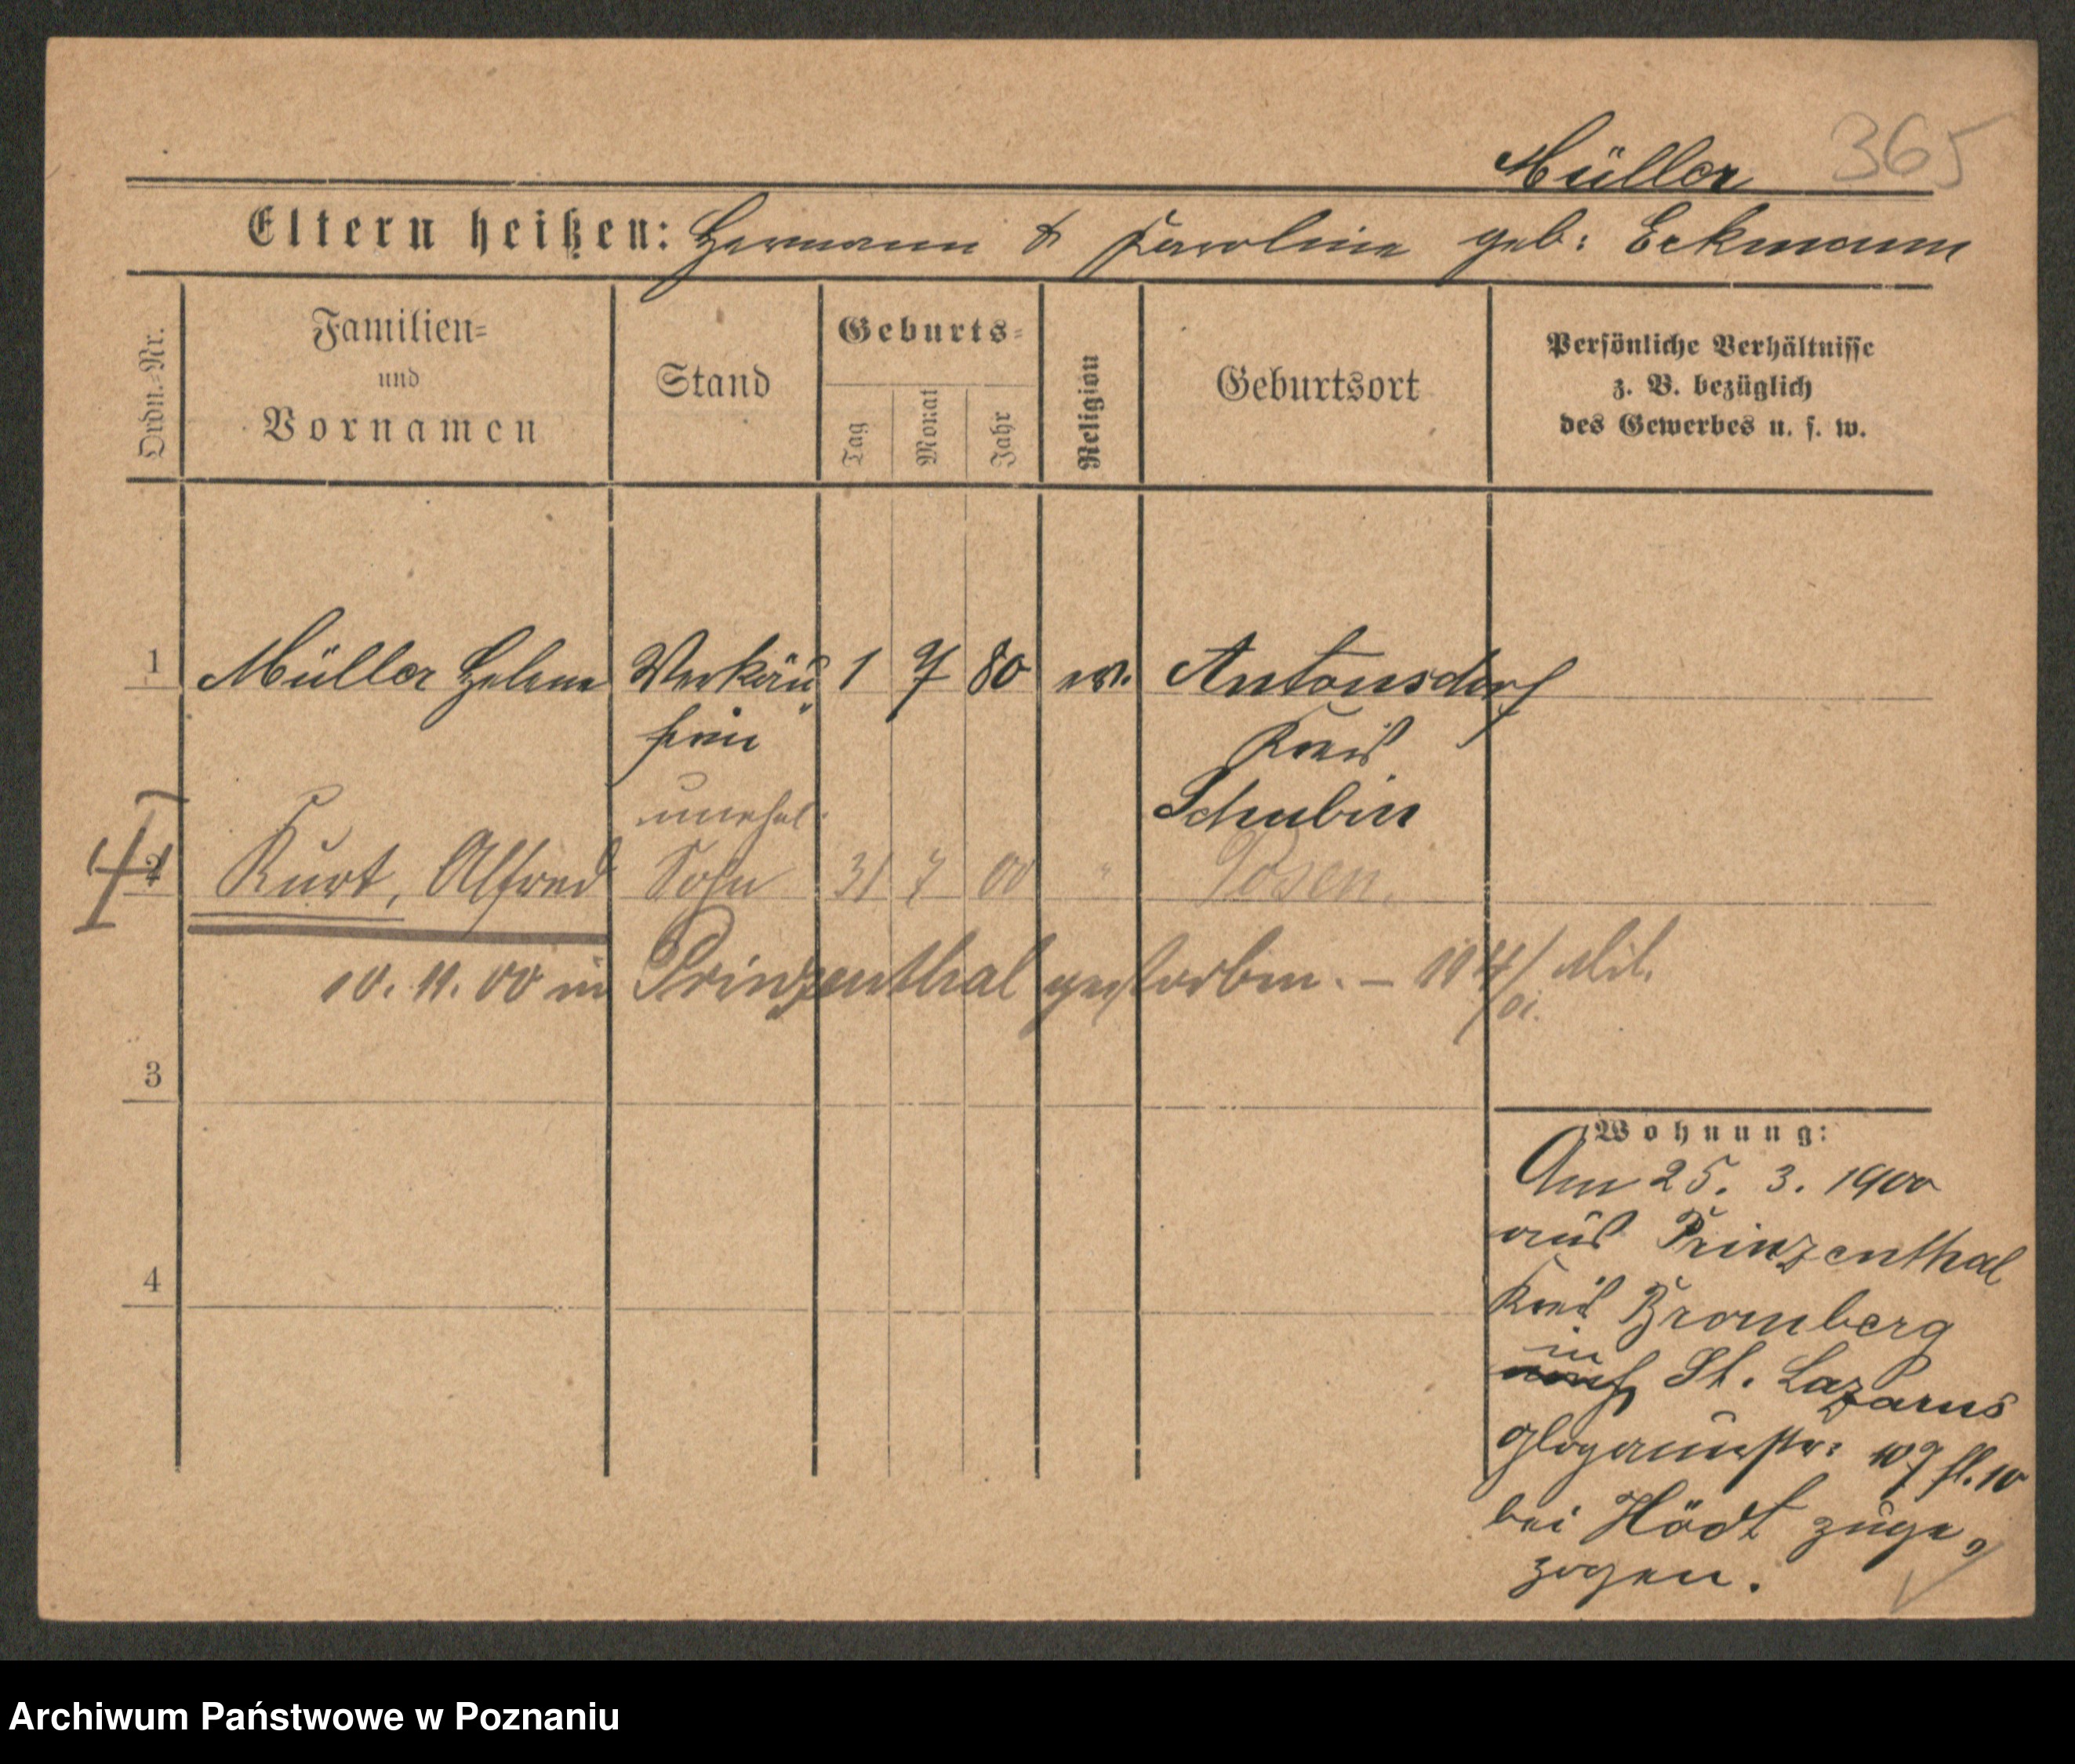 Müller 365
Eltern heißen: Hermann & Karoline geb: Eckmann
Ordn.=Nr.
Familien=
und
Vornamen
Stand
Geburts=
Tag
Monat
Jahr
Religion
Geburtsort
Persönliche Verhältnisse
z. B. bezüglich
des Gewerbes u. s. w.
1 Müller Helene Verkäu 1 7 80 ev. Antonsdorf
ferin Kreis
unehel. Schubin
2 Kurt, Alfred Sohn 31 7 00 " Posen.
10. 11. 00 in Prinzenthal gestorben. –
3
Wohnung:
Am 25. 3. 1900
aus Prinzenthal
4 Kreis Bromberg
in
St. Lazarus
Glogauerstr: 107 fl. 10
bei Hödt zuge„
zogen.
Archiwum Państwowe w Poznaniu